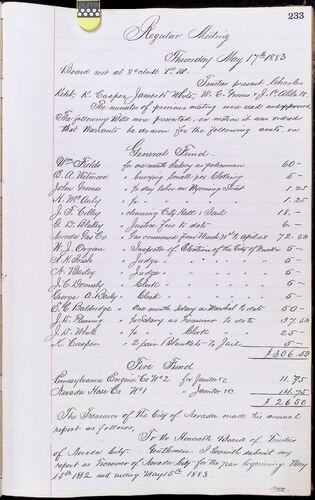 233
Regular Meeting
Thursday May 17th 1883
Board met at 8 o'clock P.M.
Trustees present Charles
Kent, K. Casper, James D. White, W. C. Groves &
The minutes of previous meeting were read and approved
The following bills were presented, on motion it was ordered
that Warrants be drawn for the following amts, on
General Fund
Wm Fields for one month Salary as policeman 60 -
" burying Small pox Clothing 5 -
John " ½ day labor on Wyoming Street 1.25
H. McCauly " ½ " " " " 1.25
J. F. Colley " cleaning City Hall & Jail 18. -
G. D. Blakey " Justice fees to date 6 -
Nevada Gas Co " Gas consumed from March 31st to April 28 72.50
W. J. Organ " Inspector of Election of the City of Nevada 5 -
" Judge " " " " 5 -
N. Bailey " Judge " " " " 5 -
J. C. " Clerk " " " " 5 -
George A. " Clerk " " " " 5 -
E. C. Baldridge " one month Salary as Marshal to date 50 -
J. W. " " Salary as Treasurer to date 37.50
J. D. White " " " Clerk 25 -
K. Casper " 2 pair Blankets to Jail 5 -
$306.50
Fire Fund
Pennsylvania Engine Co No 2 for Janitor 11.75
Nevada Hose Co No 1 " Janitor 14.75
$26.50
The Treasurer of the City of Nevada made his annual
report as follows,
To the Honorable Board of Trustees
of Nevada City - Gentlemen I herewith submit my
report as Treasurer of Nevada City for the year beginning May
15th 1882 and ending May 15th 1883.